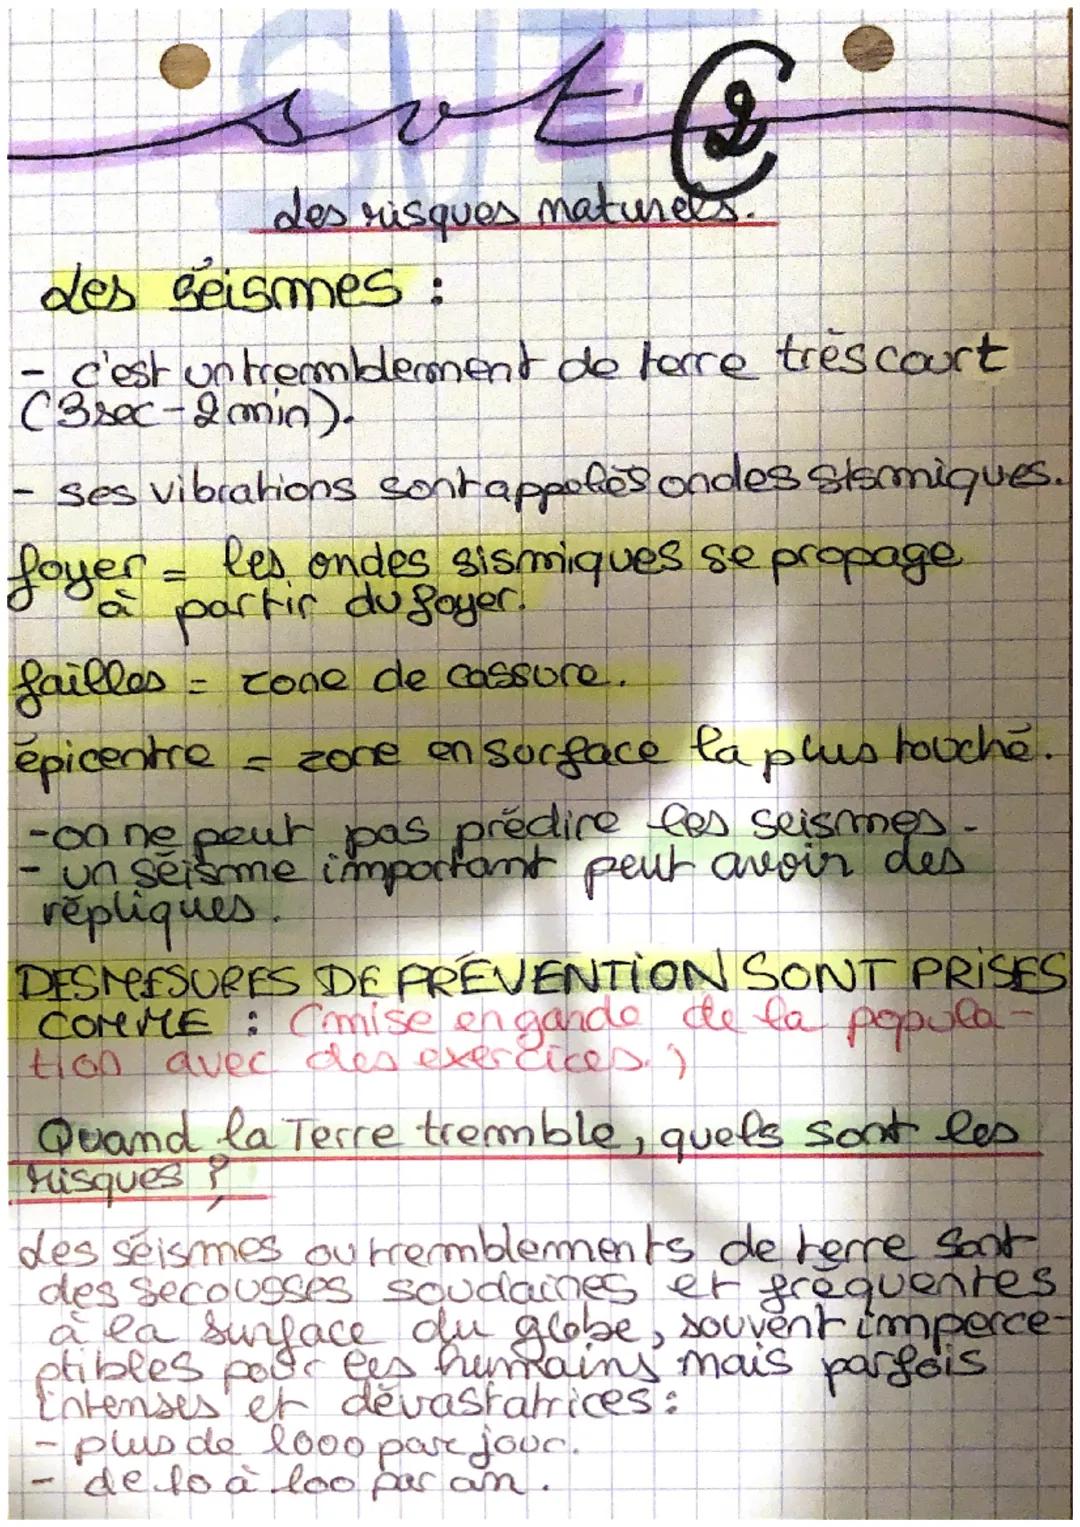 SVT
svt 2
des risques naturels.
des séismes :
- c'est un tremblement de terre très court
(3sec-2min).
- ses vibrations sont appelés ondes sismiques.
foyer = les ondes sismiques se propage
à partir du foyer.
failles = zone de cassure.
épicentre = zone en surface la plus touché.
- on ne peut pas prédire les seismes.
- un séisme important peut avoir des
répliques.
DES MESURES DE PRÉVENTION SONT PRISES
COMME : (mise en garde de la popula-
tion avec des exercices.)
Quand la Terre tremble, quels sont les
risques ?
des séismes ou tremblements de terre sont
des secousses soudaines et fréquentes
à la surface du globe, souvent imperce-
ptibles pour les humains mais parfois
intenses et dévastatrices :
- plus de 1000 par jour.
- de 10 à 100 par an.